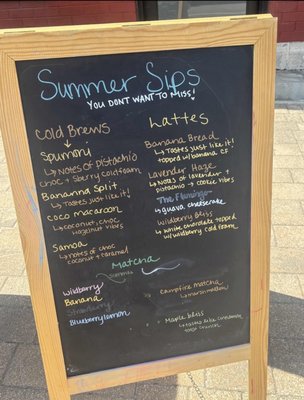 Summer Sips
YOU DON'T WANT TO MISS!
Cold Brews
Spumoni
↳ Notes of Pistachio
choc + sberry cold foam
Bananna Split
↳ Tastes just like it!
Coco macaroon
↳ coconut, choc
hazelnut vibes
Samoa
↳ Notes of choc
coconut + caramel
Lattes
Banana Bread
↳ Tastes just like it!
topped w/banana CF
Lavender Haze
↳ Notes of lavender +
pistachio → cookie vibes
The Flamingo
↳ guava cheesecake
Wildberry Bliss
↳ white chocolate topped
w/wildberry cold foam
Matcha
Summer
Wildberry
Banana
Strawberry
Blueberry lemon
Campfire Matcha
↳ marshmallow
Maple Bliss
↳ tastes like cinnamon
toast crunch